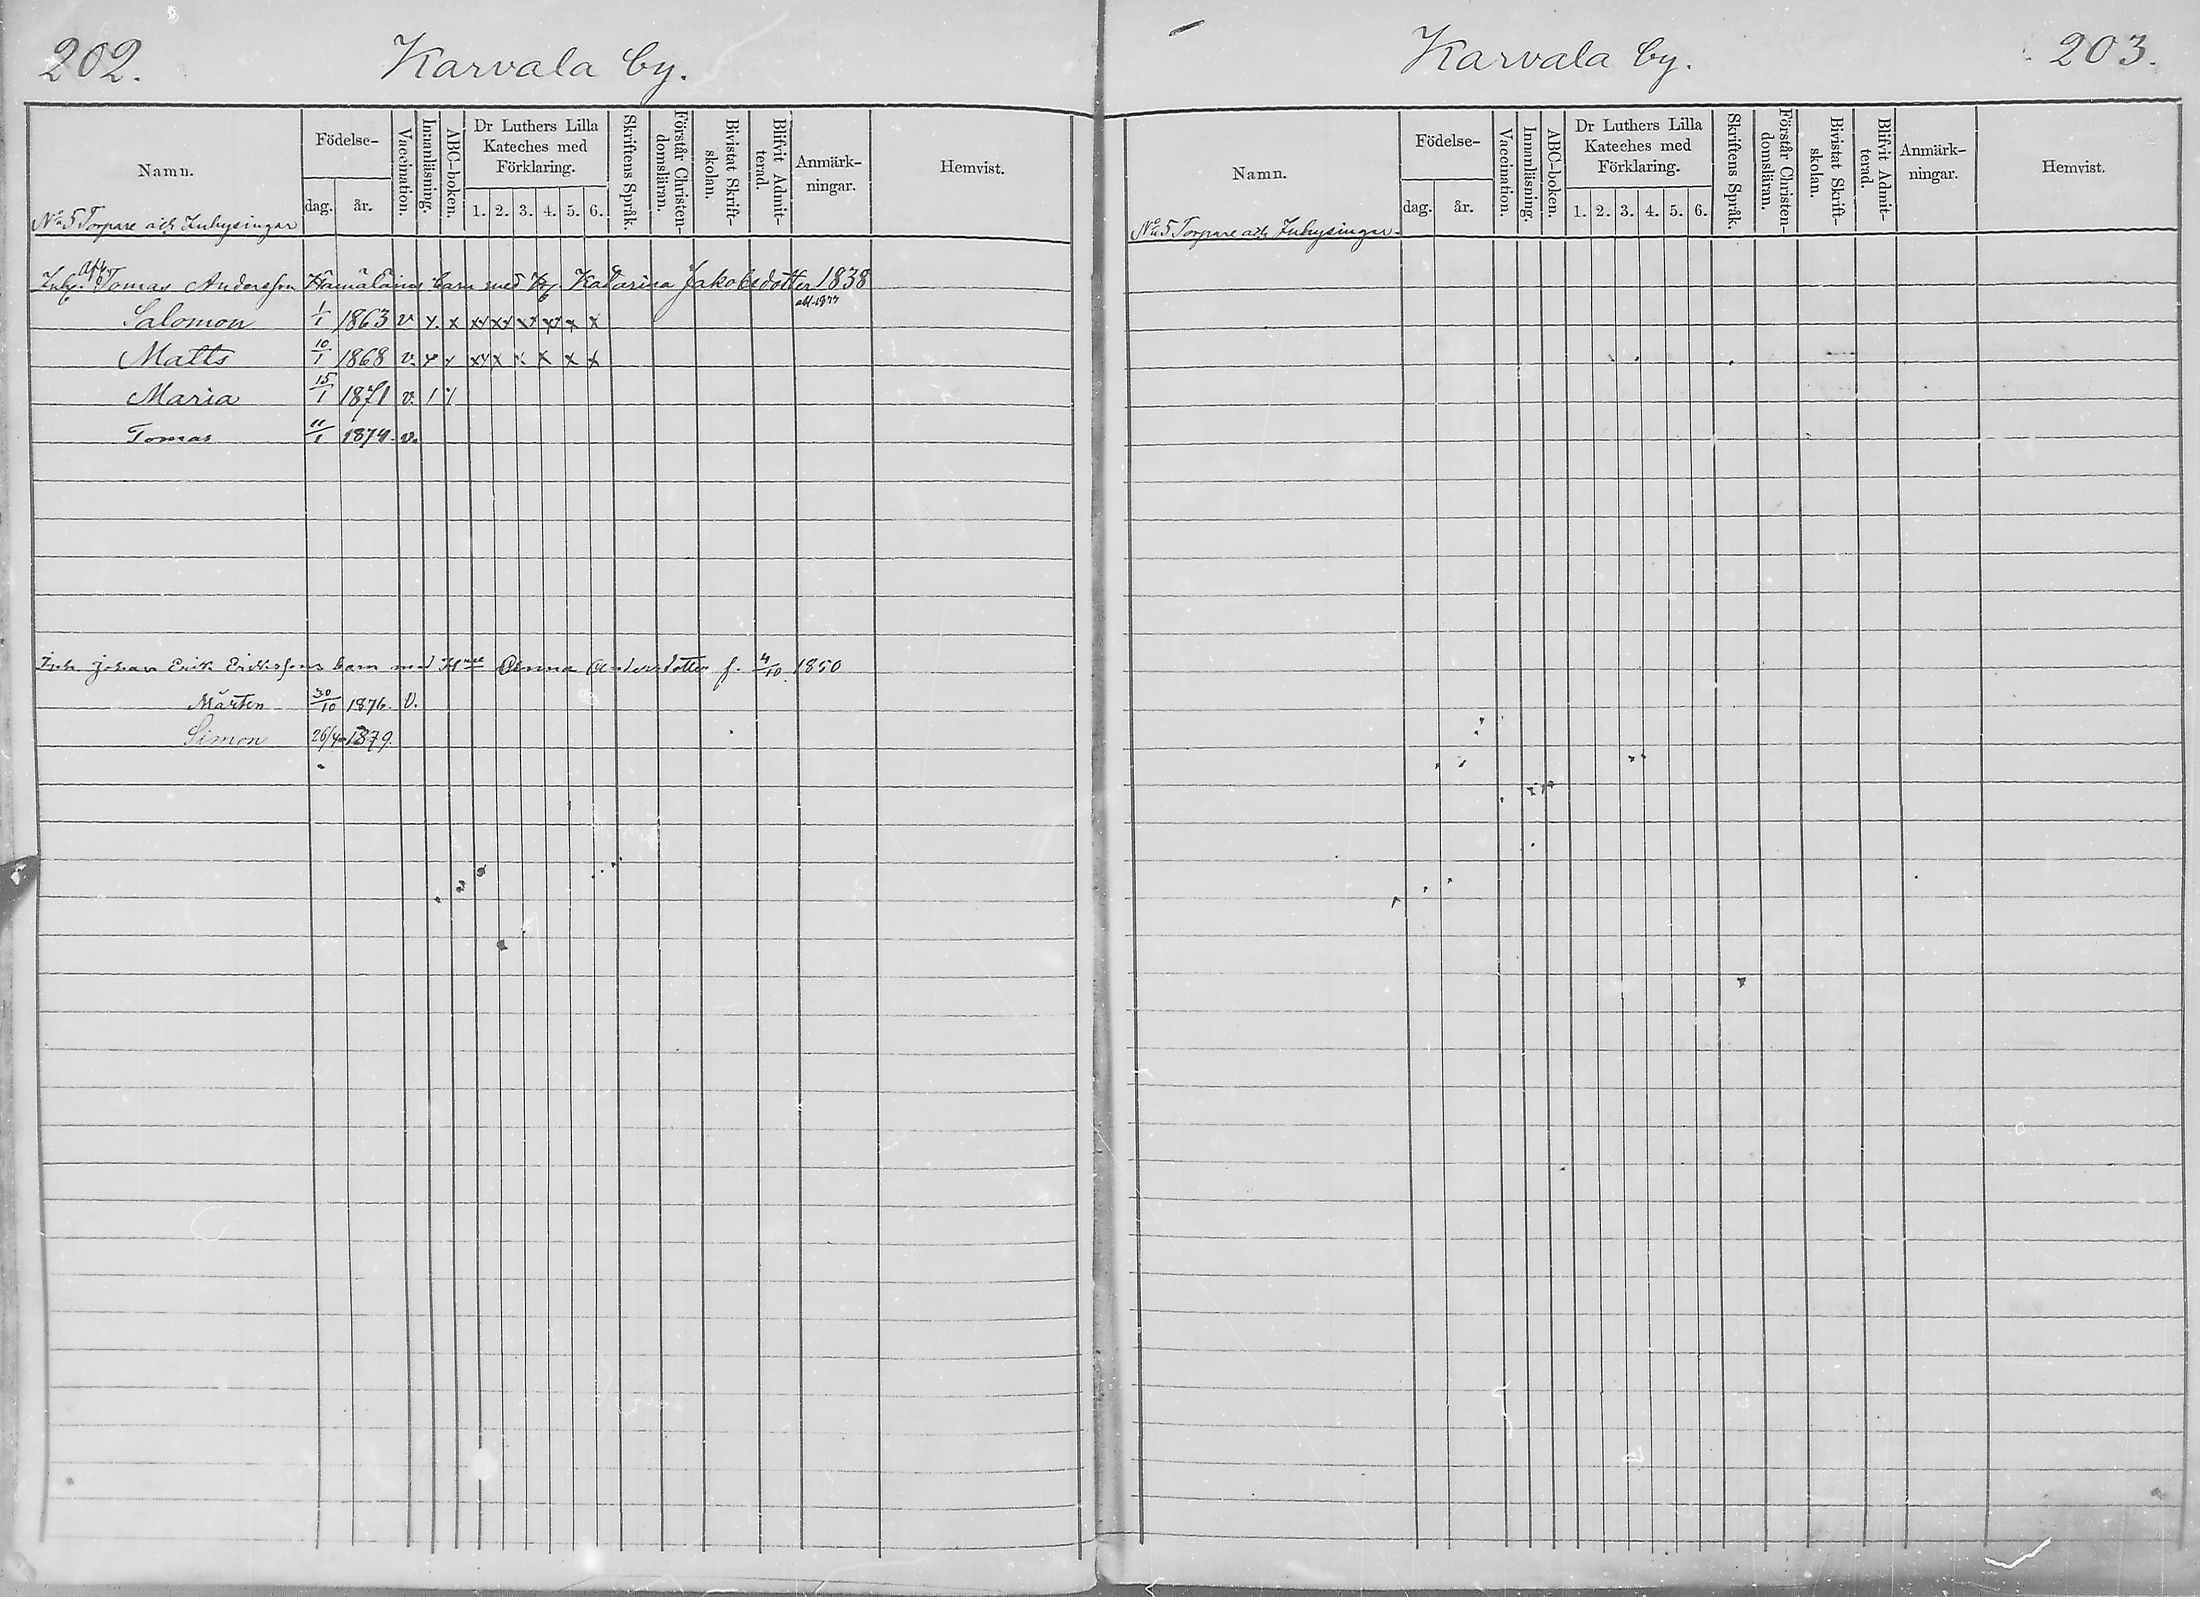 202.
Karvala by.
Namn.
Födelse-
dag.
år.
Vaccination.
Innanläsning.
ABC-boken.
Dr Luthers Lilla
Kateches med
Förklaring.
1. 2. 3. 4. 5. 6.
Skriftens Språk.
Förstår Christen-
domsläran.
Bivistat Skrift-
skolan.
Blifvit Admit-
terad.
Anmärk-
ningar.
Hemvist.
No 5 Torpare och Inhysingar
afl.
Inhy. Tomas Andersson Hämäläins barn med Katarina Jakobsdotter 1838
Salomon 1/1 1863 v x x xx xx xx xx x x
Matts 10/1 1868 v. x x xx x x x x x
Maria 15/1 1871 v. 1
Tomas 11/1 1874 v.
Inh Johan Erik Erikssons barn med Hnee Anna Andersdotter f. 4/10 1850
Mårten 30/10 1876 v.
Simon 26/4 1879.
Karvala by.
203.
Namn.
Födelse-
dag.
år.
Vaccination.
Innanläsning.
ABC-boken.
Dr Luthers Lilla
Kateches med
Förklaring.
1. 2. 3. 4. 5. 6.
Skriftens Språk.
Förstår Christen-
domsläran.
Bivistat Skrift-
skolan.
Blifvit Admit-
terad.
Anmärk-
ningar.
Hemvist.
No 5 Torpare och Inhysingar